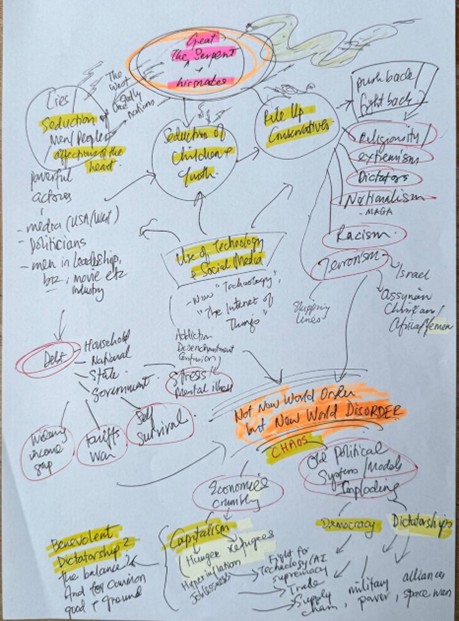 Great
The Serpent
+
Lies/
Seduction of
Men/Peoples
affections of the
heart.
The West
Gully
Nations
powerful
actors
- media (USA/West)
- Politicians
- men in leadership,
biz, movie etc
industry
Seduction of
Children +
Youth
Rile Up
Conservatives
push back/
fight back
Religiosity/
extremism
Dictators
Nationalism
- MAGA
Racism
Terrorism
Israel
Assyrian
Christian/
Africa/Yemen
Shipping
lines
Use of Technology
+ Social Media
- New "Technology"
"The Internet of
Things"
Addiction
Disenchantment
Confusion
Stress +
Mental illness
Debt
Household
National
State
Government
income
gap
Tariffs
War
Self
Survival
Not New World Order
but New World DISORDER
CHAOS
Economies
crumbling
Old Political
Systems/Models
Imploding
Benevolent
Dictatorship?
the balance?
And for Common
good + ground
Capitalism
Hunger Refugees
Hyperinflation
Joblessness
Democracy
Dictatorships
Fought for
Technology/AI
supremacy
Trade
Supply
chain,
military
power,
alliances
space wars